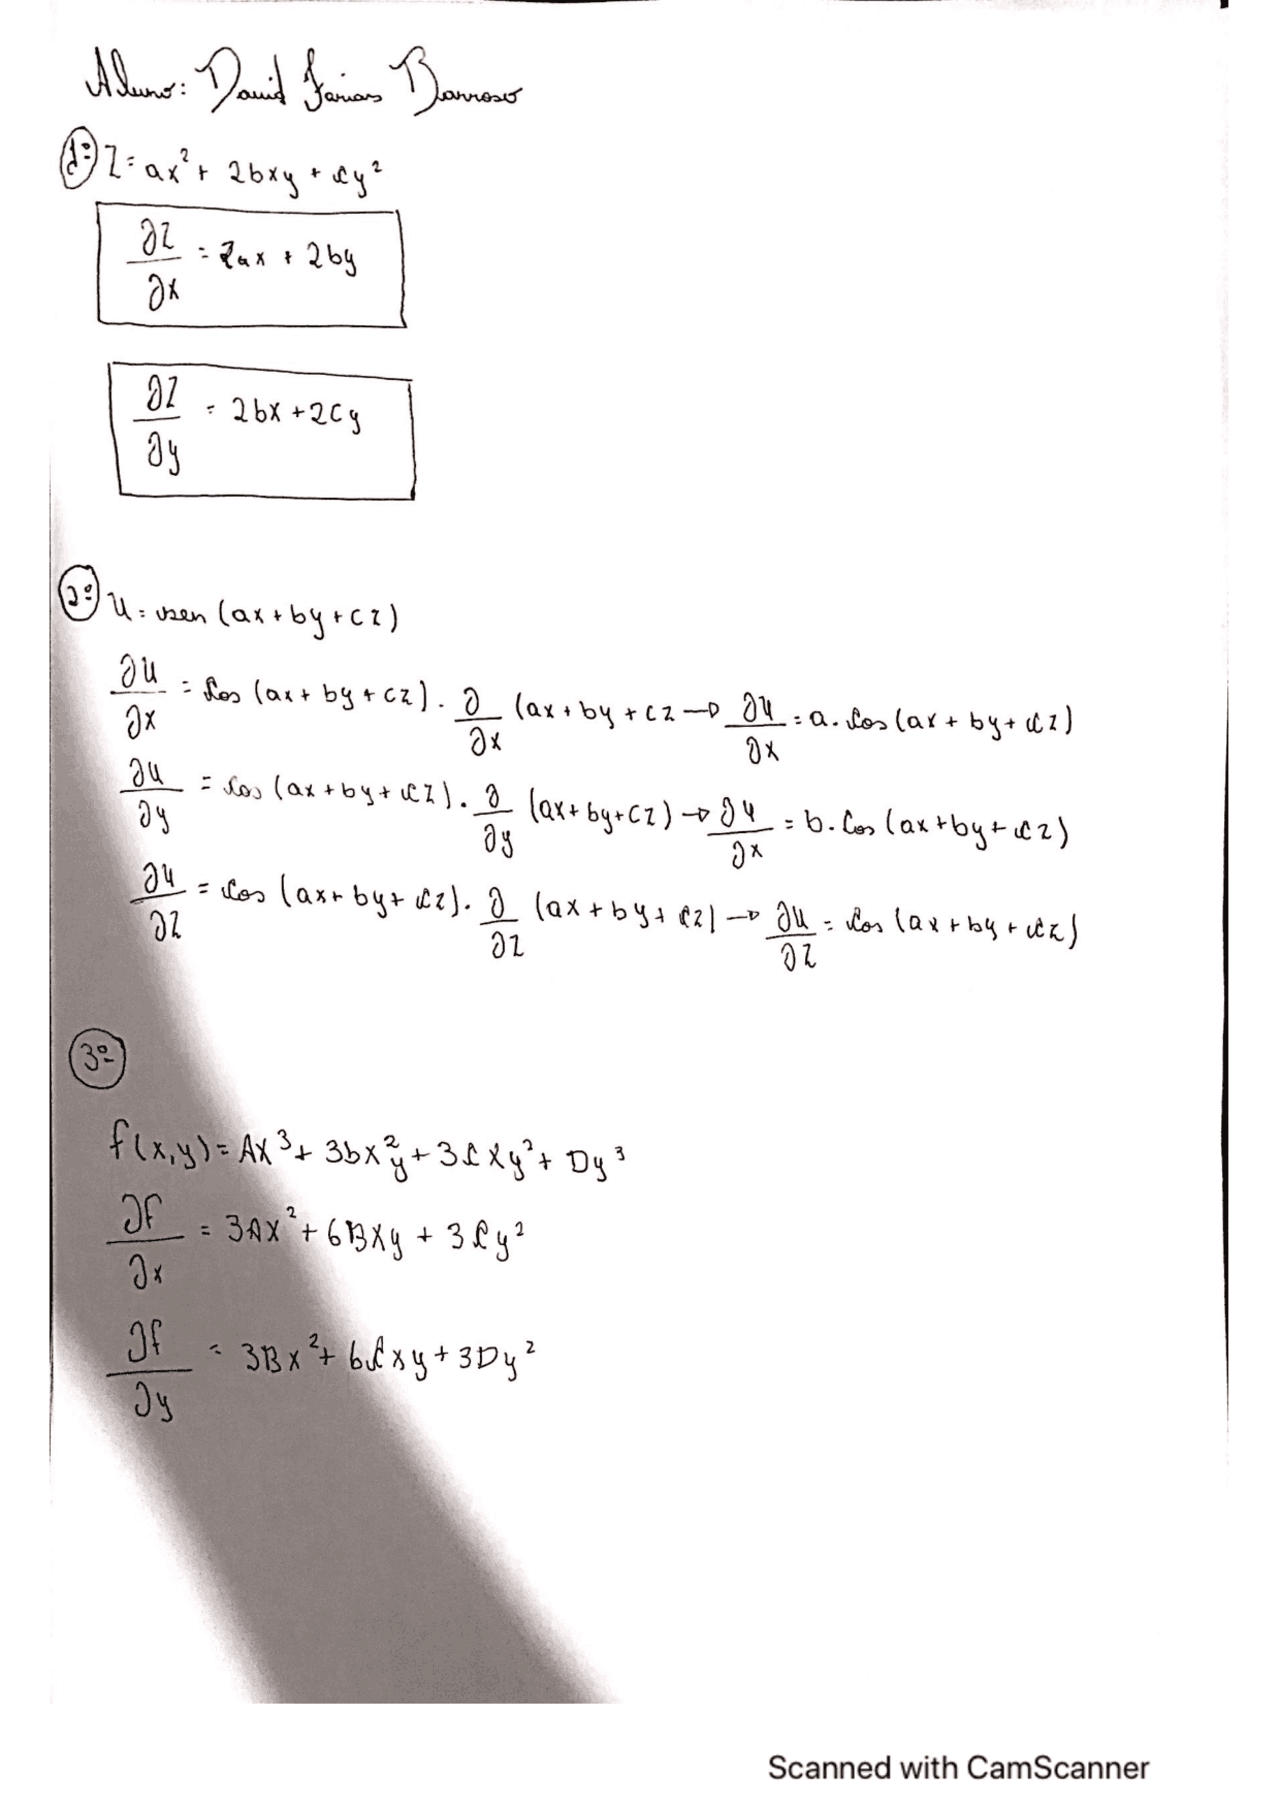 Aluno: David Farias Barroso
1º Z = ax² + 2bxy + cy²
∂Z/∂x = 2ax + 2by
∂Z/∂y = 2bx + 2Cy
2º U = sen (ax + by + cz)
∂U/∂x = Cos (ax + by + cz) . ∂/∂x (ax + by + cz → ∂u/∂x = a. Cos (ax + by + cz)
∂u/∂y = cos (ax + by + cz) . ∂/∂y (ax + by + Cz) → ∂u/∂x = b. Cos (ax + by + cz)
∂u/∂z = cos (ax + by + cz) . ∂/∂z (ax + by + cz) → ∂u/∂z = cos (ax + by + cz)
3º
f(x,y) = Ax³ + 3bx²y + 3Cxy² + Dy³
∂f/∂x = 3Ax² + 6Bxy + 3Cy²
∂f/∂y = 3Bx² + 6Cxy + 3Dy²
Scanned with CamScanner